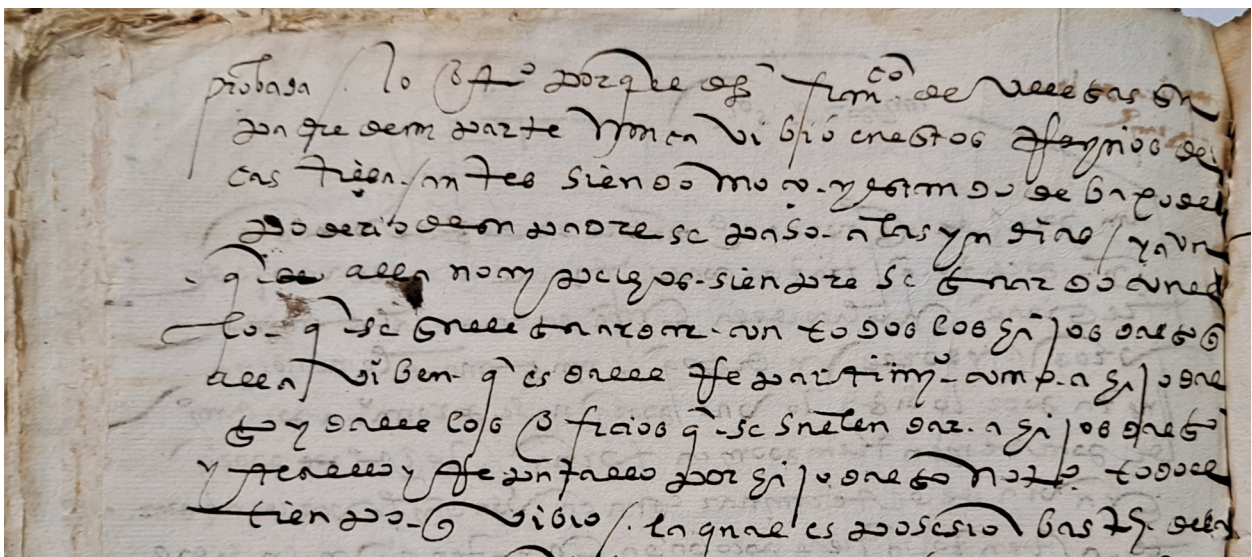 probada / lo otro porque el dho franco de villegas
padre de my parte nunca vibio en estos rreynos de
castilla / antes siendo moço y estando debaxo del
poderio de su padre se paso a las yndias / y aun
q alla no ay pechos sienpre se guardo con el
lo q se suele guardar con todos los hijosdalgo q
alla viben q es dalle rrepartimyo como a hijodal
go y dalle los oficios q se suelen dar a hijosdalgo
y tenello y rreputallo por hijodalgo noto todo el
tienpo q vibio / la qual es posesion bastte de la